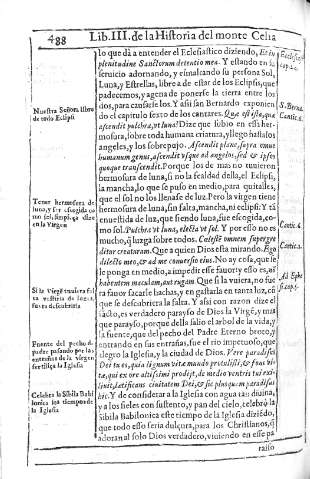 488 Lib. III. de la Historia del monte Celia
lo que dà a entender el Eclesiastico diziendo, Et in
plenitudine Sanctorum detentio mea. Y estando en su
servicio adornando, y esmaltando su persona Sol,
Luna, y Estrellas, libre a de estar de los Eclipsi, que
padecemos, y agena de ponerse la tierra entre los
dos, para causarse los. Y assi san Bernardo exponien
do el capitulo sexto de los cantares. Quæ est ista, quæ
ascendit pulchra, vt luna? Dize que subio en esta her-
mosura, sobre toda humana criatura, y llego hasta los
angeles, y los sobrepujo. Ascendit planè, supra omne
humanum genus, ascendit vsque ad angelos, sed & ipsos
quoque transcendit. Porque los de mas no tuvieron
hermosura de luna, si no la fealdad della, el Eclipsi,
la mancha, lo que se puso en medio, para quitalles,
que el sol no los llenase de luz. Pero la virgen tiene
hermosura de luna, sin falta, mancha, ni eclipsi. Y tã
enuestida de luz, que siendo luna, fue escogida, co-
mo sol. Pulchra vt luna, electa vt sol. Y por esso no es
mucho, q̃ luzga sobre todos. Cœlestẽ omnem supergre
ditur creaturam. Que a quien Dios esta mirando. Ego
dilecto meo, & ad me conuersio eius. No ay cosa, que se
le ponga en medio, a impedir esse fauor: y esso es, nõ
habentem maculam, aut rugam. Que si la vuiera, no fue
ra fauor sacarle hachas, y engastarla en tanta luz, con
que se descubriera la falta. Y assi con razon dize el
sabio, es verdadero parayso de Dios la Virgẽ, y mas
que parayso, porque della salio el arbol de la vida, y
la fuente, que del pecho del Padre Eterno broto, y
entrando en sus entrañas, fue el rio impetuoso, que
alegro la Iglesia, y la ciudad de Dios. Vere paradisus
Dei tu es, quia lignum vitæ mundo protulisti, & fons vi-
tæ, qui ex ore altissimi prodijt, de medio ventris tui exi-
liuit, lætificans ciuitatem Dei, & sic plusquam paradisus
hic. Y de considerar a la Iglesia con agua tan diuina,
y a los fieles con sustento, y pan del cielo, celebrò la
sibila Babilonica este tiempo de la Iglesia diziẽdo,
que todo esse seria dulçura, para los Christianos, q̃
adoran al solo Dios verdadero, viuiendo en esse pa
raiso
Nuestra Señora libre
de todo Eclipsi
Tener hermosura de
luna, y ser escogida co
mo sol,
en la Virgen
Si la Virgẽ tuuiera fal
ta vestirla de luz, 
fuera descubrirla
Fuente del pecho d̃l
padre passando por las
entrañas de la virgen
fertiliça la Iglesia
Celebra la Sibila Babi
lonica los tiempos de
la Iglesia
S. Berna.
Cantic. 6.
Cantic. 6.
Cantic.
Ad Ephe